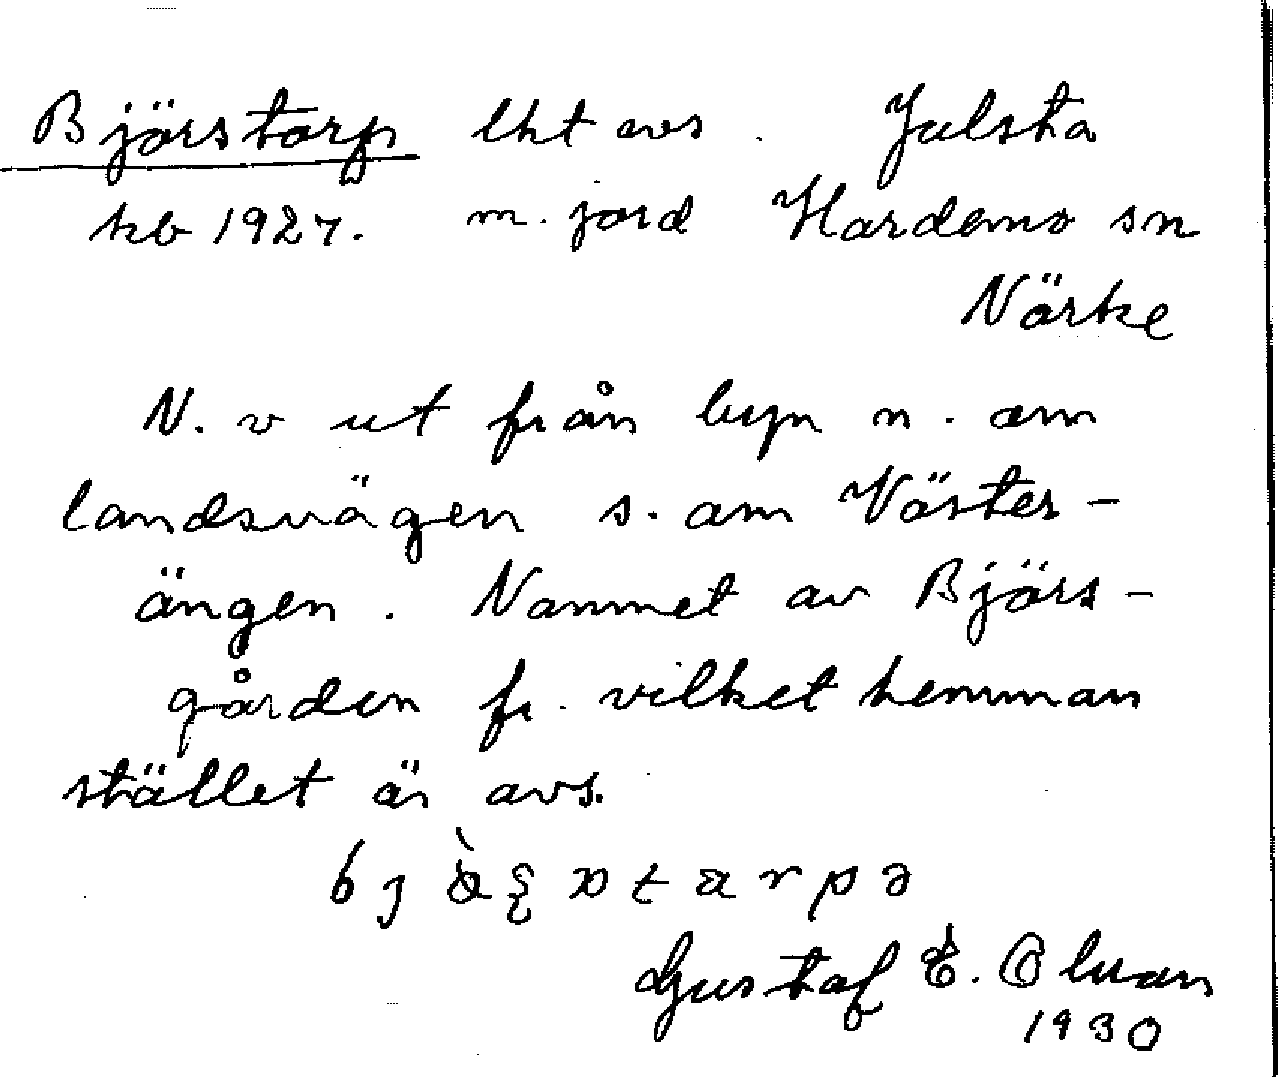 Björstorp lht avs. Julsta
kb 1927. m. jord Hardemo sn
Närke
N. v ut från byn n. om
landsvägen s. om Väster-
ängen. Namnet av Björs-
gården fr. vilket hemman
stället är avs.
Gustaf E. Olson
1930